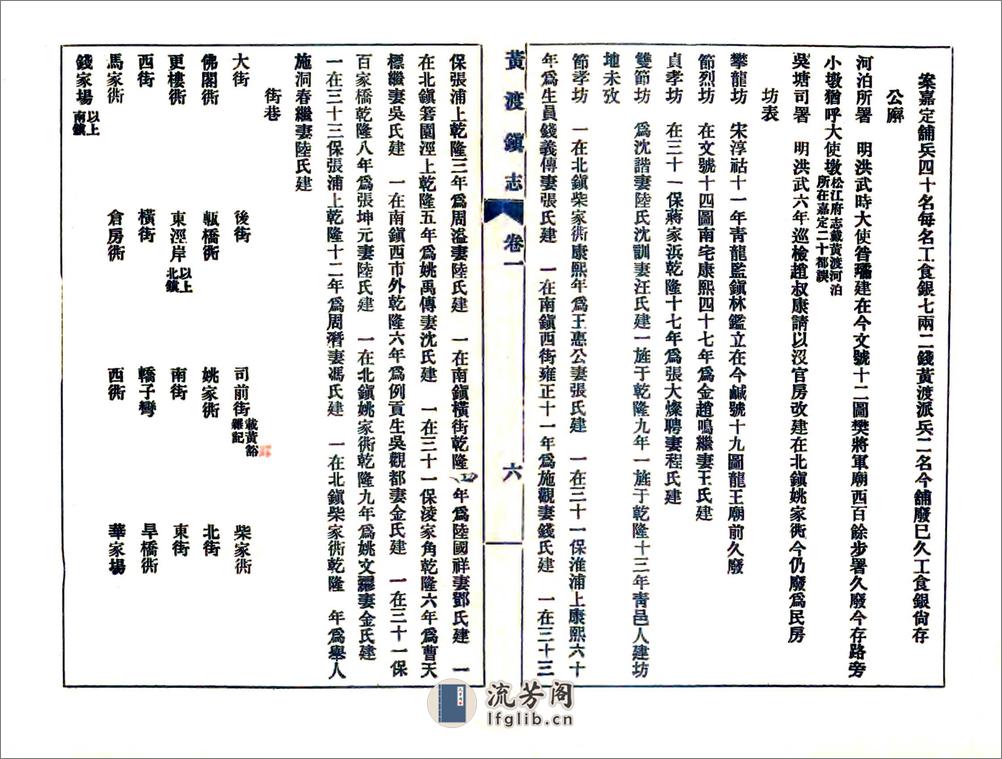 案嘉定舖兵四十名每名工食銀七兩二錢黃渡派兵二名今舖廢已久工食銀尙存
公廨
河泊所署　明洪武時大使昝璠建在今文號十二圖樊將軍廟西百餘步署久廢今存路旁
小墩猶呼大使墩松江府志載黃渡河泊所在嘉定二十都誤
吳塘司署　明洪武六年巡檢趙叔康請以沒官房改建在北鎭姚家衖今仍廢爲民房
坊表
攀龍坊　宋淳祜十一年靑龍監鎭林鑑立在今鹹號十九圖龍王廟前久廢
節烈坊　在文號十四圖南宅康熙四十七年爲金趙鳴繼妻王氏建
貞孝坊　在三十一保蔣家浜乾隆十七年爲張大燦聘妻程氏建
雙節坊　爲沈諧妻陸氏沈訓妻汪氏建一旌于乾隆九年一旌于乾隆十三年靑邑人建坊
地未攷
節孝坊　一在北鎭柴家衖康熙年爲王惠公妻張氏建　一在三十一保淮浦上康熙六十
年爲生員錢義傳妻張氏建　一在南鎭西街雍正十一年爲施觀妻錢氏建　一在三十三
黃渡鎭志　卷一　六
保張浦上乾隆三年爲周溢妻陸氏建　一在南鎭橫街乾隆　年爲陸國祥妻鄧氏建　一
在北鎭箬園涇上乾隆五年爲姚禹傳妻沈氏建　一在三十一保淩家角乾隆六年爲曹天
標繼妻吳氏建　一在南鎭西市外乾隆六年爲例貢生吳觀都妻金氏建　一在三十一保
百家橋乾隆八年爲張坤元妻陸氏建　一在北鎭姚家衖乾隆九年爲姚文㩴妻金氏建
一在三十三保張浦上乾隆十二年爲周潛妻馮氏建　一在北鎭柴家衖乾隆　年爲舉人
施洞春繼妻陸氏建
街巷
大街　後街　司前街載黃谿雜記　柴家衖
佛閣衖　甎橋衖　姚家衖　北街
更樓衖　東涇岸以上北鎭　南街　東街
西街　橫街　轎子彎　旱橋衖
馬家衖　倉房衖　西衖　華家場
錢家場以上南鎭
流芳阁
lfglib.cn